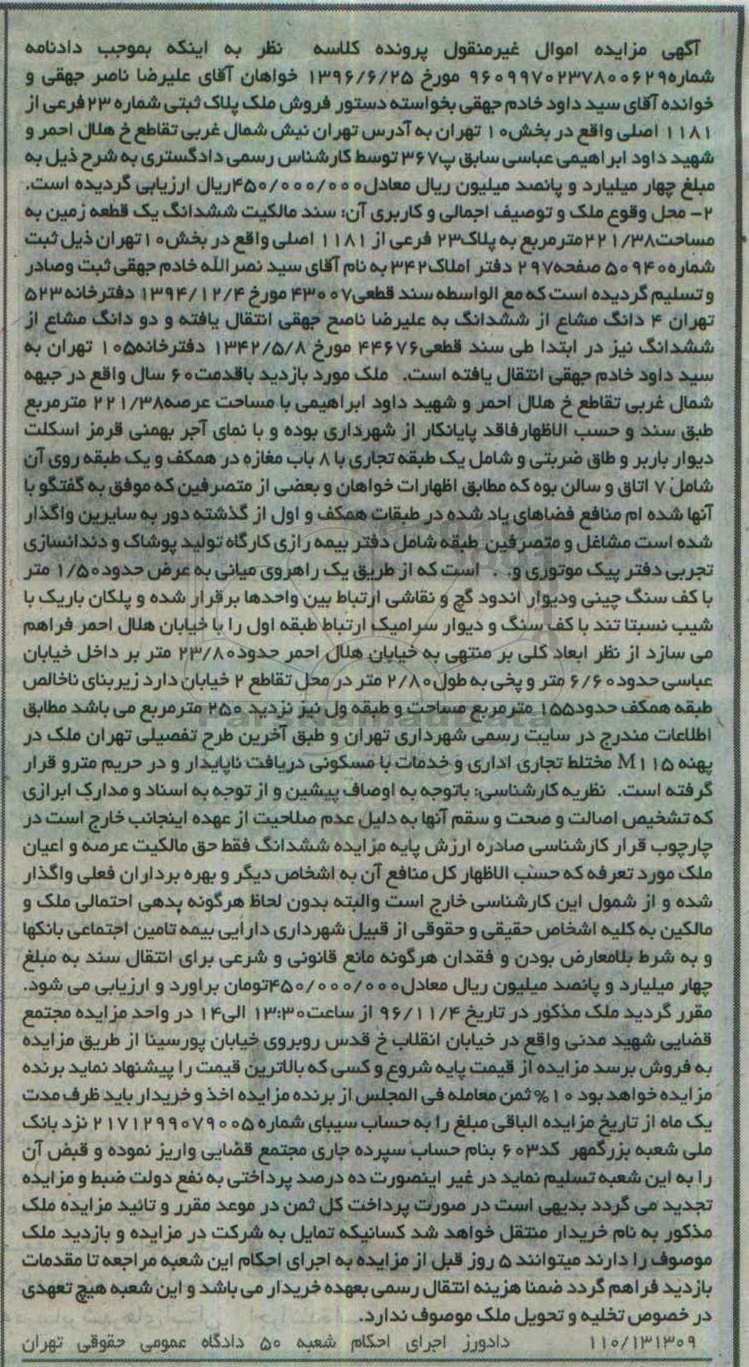 آگهی مزایده اموال غیرمنقول پرونده کلاسه نظر به اینکه بموجب دادنامه
شماره۹۶۰۹۹۷۰۲۳۷۸۰۰۶۲۹ مورخ ۱۳۹۶/۶/۲۵ خواهان آقای علیرضا ناصر جهقی و
خوانده آقای سید داود خادم جهقی بخواسته دستور فروش ملک پلاک ثبتی شماره ۲۳فرعی از
۱۱۸۱ اصلی واقع در بخش۱۰ تهران به آدرس تهران نبش شمال غربی تقاطع خ هلال احمر و
شهید داود ابراهیمی عباسی سابق پ۳۶۷ توسط کارشناس رسمی دادگستری به شرح ذیل به
مبلغ چهار میلیارد و پانصد میلیون ریال معادل۴۵۰/۰۰۰/۰۰۰ریال ارزیابی گردیده است.
۲- محل وقوع ملک و توصیف اجمالی و کاربری آن: سند مالکیت ششدانگ یک قطعه زمین به
مساحت۲۲۱/۳۸مترمربع به پلاک۲۳ فرعی از ۱۱۸۱ اصلی واقع در بخش۱۰تهران ذیل ثبت
شماره۵۰۹۴۰ صفحه۲۹۷ دفتر املاک۳۴۲ به نام آقای سید نصرالله خادم جهقی ثبت وصادر
و تسلیم گردیده است که مع الواسطه سند قطعی۴۳۰۰۷ مورخ ۱۳۹۴/۱۲/۴ دفترخانه ۵۲۳
تهران ۴ دانگ مشاع از ششدانگ به علیرضا ناصح جهقی انتقال یافته و دو دانگ مشاع از
ششدانگ نیز در ابتدا طی سند قطعی۴۴۶۷۶ مورخ ۱۳۴۲/۵/۸ دفترخانه۱۰۵ تهران به
سید داود خادم جهقی انتقال یافته است. ملک مورد بازدید باقدمت۶۰ سال واقع در جبهه
شمال غربی تقاطع خ هلال احمر و شهید داود ابراهیمی با مساحت عرصه۲۲۱/۳۸ مترمربع
طبق سند و حسب الاظهارفاقد پایانکار از شهرداری بوده و با نمای آجر بهمنی قرمز اسکلت
دیوار باربر و طاق ضربتی و شامل یک طبقه تجاری با ۸ باب مغازه در همکف و یک طبقه روی آن
شامل ۷ اتاق و سالن بوه که مطابق اظهارات خواهان و بعضی از متصرفین که موفق به گفتگو با
آنها شده ام منافع فضاهای یاد شده در طبقات همکف و اول از گذشته دور به سایرین واگذار
شده است مشاغل و متصرفین طبقه شامل دفتر بیمه رازی کارگاه تولید پوشاک و دندانسازی
تجربی دفتر پیک موتوری و. . است که از طریق یک راهروی میانی به عرض حدود۱/۵۰ متر
با کف سنگ چینی ودیوار اندود گچ و نقاشی ارتباط بین واحدها برقرار شده و پلکان باریک با
شیب نسبتا تند با کف سنگ و دیوار سرامیک ارتباط طبقه اول را با خیابان هلال احمر فراهم
می سازد از نظر ابعاد کلی بر منتهی به خیابان هلال احمر حدود۲۳/۸۰ متر بر داخل خیابان
عباسی حدود۶/۶۰ متر و پخی به طول۲/۸۰ متر در محل تقاطع ۲ خیابان دارد زیربنای ناخالص
طبقه همکف حدود۱۵۵ مترمربع مساحت و طبقه ول نیز نزدید ۲۵۰ مترمربع می باشد مطابق
اطلاعات مندرج در سایت رسمی شهرداری تهران و طبق آخرین طرح تفصیلی تهران ملک در
پهنه M۱۱۵ مختلط تجاری اداری و خدمات با مسکونی دریافت ناپایدار و در حریم مترو قرار
گرفته است. نظریه کارشناسی: باتوجه به اوصاف پیشین و از توجه به اسناد و مدارک ابرازی
که تشخیص اصالت و صحت و سقم آنها به دلیل عدم صلاحیت از عهده اینجانب خارج است در
چارچوب قرار کارشناسی صادره ارزش پایه مزایده ششدانگ فقط حق مالکیت عرصه و اعیان
ملک مورد تعرفه که حسب الاظهار کل منافع آن به اشخاص دیگر و بهره برداران فعلی واگذار
شده و از شمول این کارشناسی خارج است والبته بدون لحاظ هرگونه بدهی احتمالی ملک و
مالکین به کلیه اشخاص حقیقی و حقوقی از قبیل شهرداری دارایی بیمه تامین اجتماعی بانکها
و به شرط بلامعارض بودن و فقدان هرگونه مانع قانونی و شرعی برای انتقال سند به مبلغ
چهار میلیارد و پانصد میلیون ریال معادل۴۵۰/۰۰۰/۰۰۰تومان براورد و ارزیابی می شود.
مقرر گردید ملک مذکور در تاریخ ۹۶/۱۱/۴ از ساعت۱۳:۳۰ الی۱۴ در واحد مزایده مجتمع
قضایی شهید مدنی واقع در خیابان انقلاب خ قدس روبروی خیابان پورسینا از طریق مزایده
به فروش برسد مزایده از قیمت پایه شروع و کسی که بالاترین قیمت را پیشنهاد نماید برنده
مزایده خواهد بود ۱۰% ثمن معامله فی المجلس از برنده مزایده اخذ و خریدار باید ظرف مدت
یک ماه از تاریخ مزایده الباقی مبلغ را به حساب سیبای شماره ۲۱۷۱۲۹۹۰۷۹۰۰۵ نزد بانک
ملی شعبه بزرگمهر کد۶۰۳ بنام حساب سپرده جاری مجتمع قضایی واریز نموده و قبض آن
را به این شعبه تسلیم نماید در غیر اینصورت ده درصد پرداختی به نفع دولت ضبط و مزایده
تجدید می گردد بدیهی است در صورت پرداخت کل ثمن در موعد مقرر و تائید مزایده ملک
مذکور به نام خریدار منتقل خواهد شد کسانیکه تمایل به شرکت در مزایده و بازدید ملک
موصوف را دارند میتوانند ۵ روز قبل از مزایده به اجرای احکام این شعبه مراجعه تا مقدمات
بازدید فراهم گردد ضمنا هزینه انتقال رسمی بعهده خریدار می باشد و این شعبه هیچ تعهدی
در خصوص تخلیه و تحویل ملک موصوف ندارد.
۱۱۰/۱۳۱۳۰۹ دادورز اجرای احکام شعبه ۵۰ دادگاه عمومی حقوقی تهران